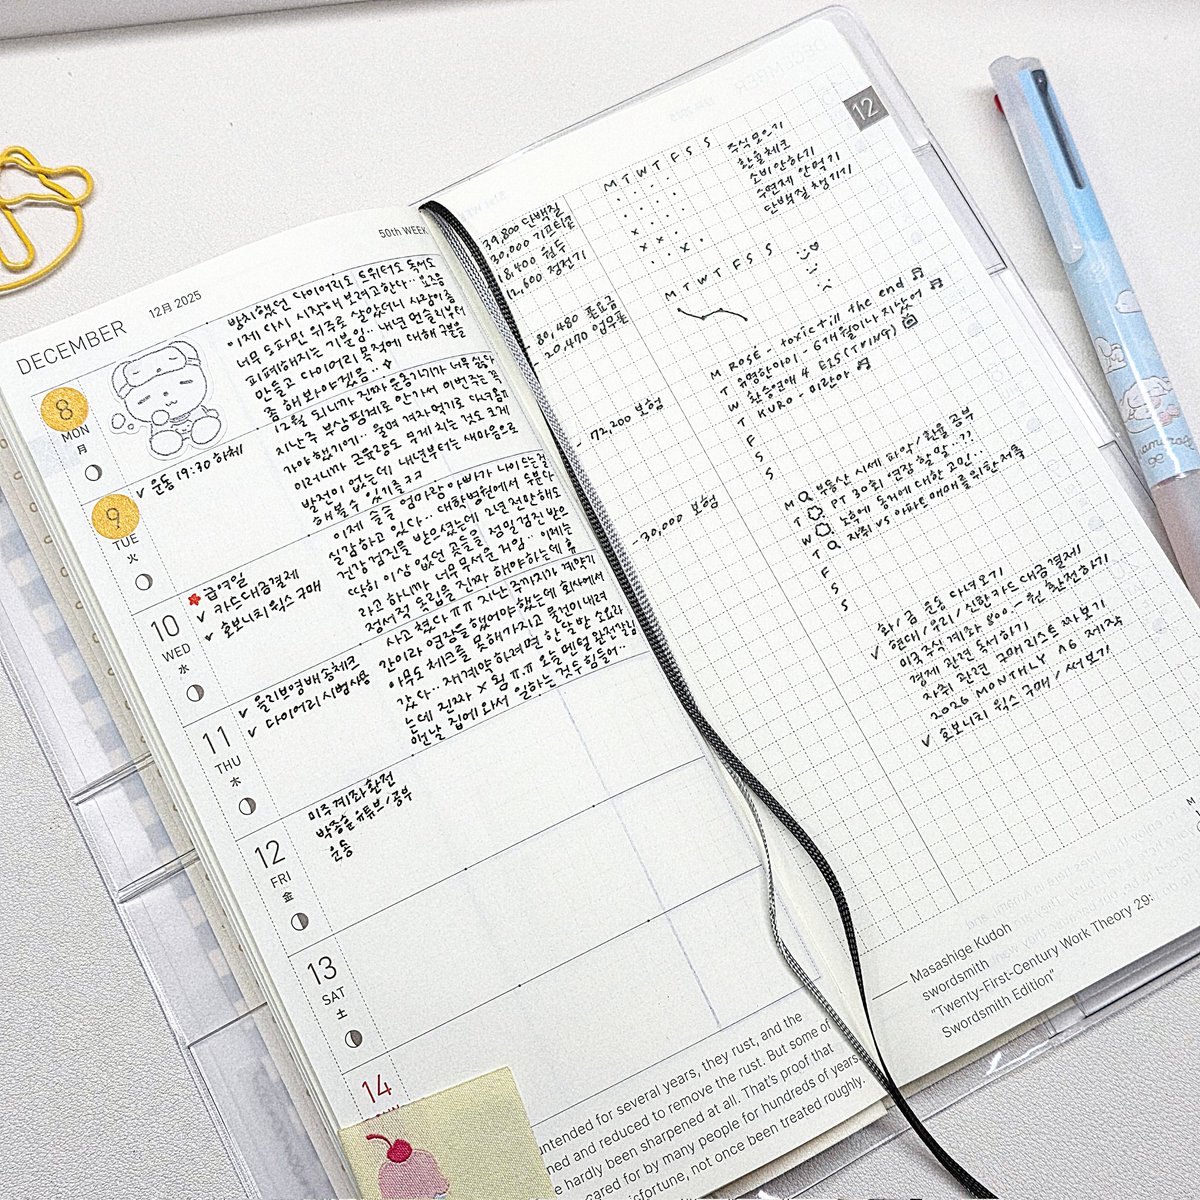 50th WEEK
DECEMBER
12月 2025
8
MON
月
방치했던 다이어리도 트위터도 독서도
이제 다시 시작해 보려고한다.. 요즘
너무 도파민 위주로 살았더니 사람이 좀
피폐해지는 기분임.. 내년 먼슬리부터
만들고 다이어리 목적에 대해 구분을
좀 해 봐야겠음..
9
TUE
火
✓ 운동 19:30 하체
12월 되니까 진짜 운동가기가 너무 싫다
지난주 부상핑계로 안가서 이번주는 꼭
가야 했기에.. 울며 겨자먹기로 다녀옴
이러니까 근육량도 무게 치는 것도 크게
발전이 없는데 내년부터는 새마음으로
해볼 수 있기를ㅋㅋ
10
WED
水
급여일
✓ 카드대금결제
✓ 호보니치 윅스 구매
이제 슬슬 엄마랑 아빠가 나이 드는걸
실감하고 있다.. 대학병원에서 두분다
건강검진을 받으셨는데 2년 전만해도
딱히 이상 없던 곳들을 정밀검진 받으
라고 하니까 너무 무서운거임.. 이제는
정서적 독립을 진짜 해야하는데 휴
11
THU
木
✓ 올리브영 배송체크
✓ 다이어리 시범사용
사고 쳤다 ㅠㅠ 지난 주까지가 계약기
간이라 연장을 했어야했는데 회사에서
아무도 체크를 못해가지고 물건이 내려
갔다.. 재계약하려면 한달반 소요라
는데 진짜 × 됨 ㅠㅠ 오늘 멘털 완전갈림
맨날 집에 와서 일하는 것두 힘들어..
12
FRI
金
미주 계좌 환전
박종훈 유튜브/공부
운동
13
SAT
土
14
39,800 단백질
30,000 기프티콘
18,400 원두
12,600 점전기
- 80,480 폰요금
- 20,470
- 72,200 보험
- 30,000 보험
12
M T W T F S S
주식 모으기
환율체크
소비안하기
수면제 안먹기
단백질 챙기기
M T W T F S S
M ROSÉ - toxic till the end
T 유명한아이 - 6개월이나 지났어
W 환승연애 4 E15 (TVING)
T KURO - 미란아
F
S
S
M 부동산 시세 파악/환율 공부
T PT 30회 연장 할말..??
W 노후에 동거에 대한 고민..
T 자취 vs 아파트매매를위한저축
F
S
S
화/금 운동 다녀오기
✓ 현대/우리/신한카드 대금결제!
미국주식 계좌 800.- 원 환전하기
경제 관련 독서하기
자취 관련 구매리스트 짜보기
2026 MONTHLY A6 제작
✓ 호보니치 윅스 구매 / 써보기
Masashige Kudoh
swordsmith
"Twenty-First-Century Work Theory 29:
Swordsmith Edition"
untended for several years, they rust, and the
ned and reduced to remove the rust. But some of
e hardly been sharpened at all. That's proof that
cared for by many people for hundreds of years
isfortune, not once been treated roughly.